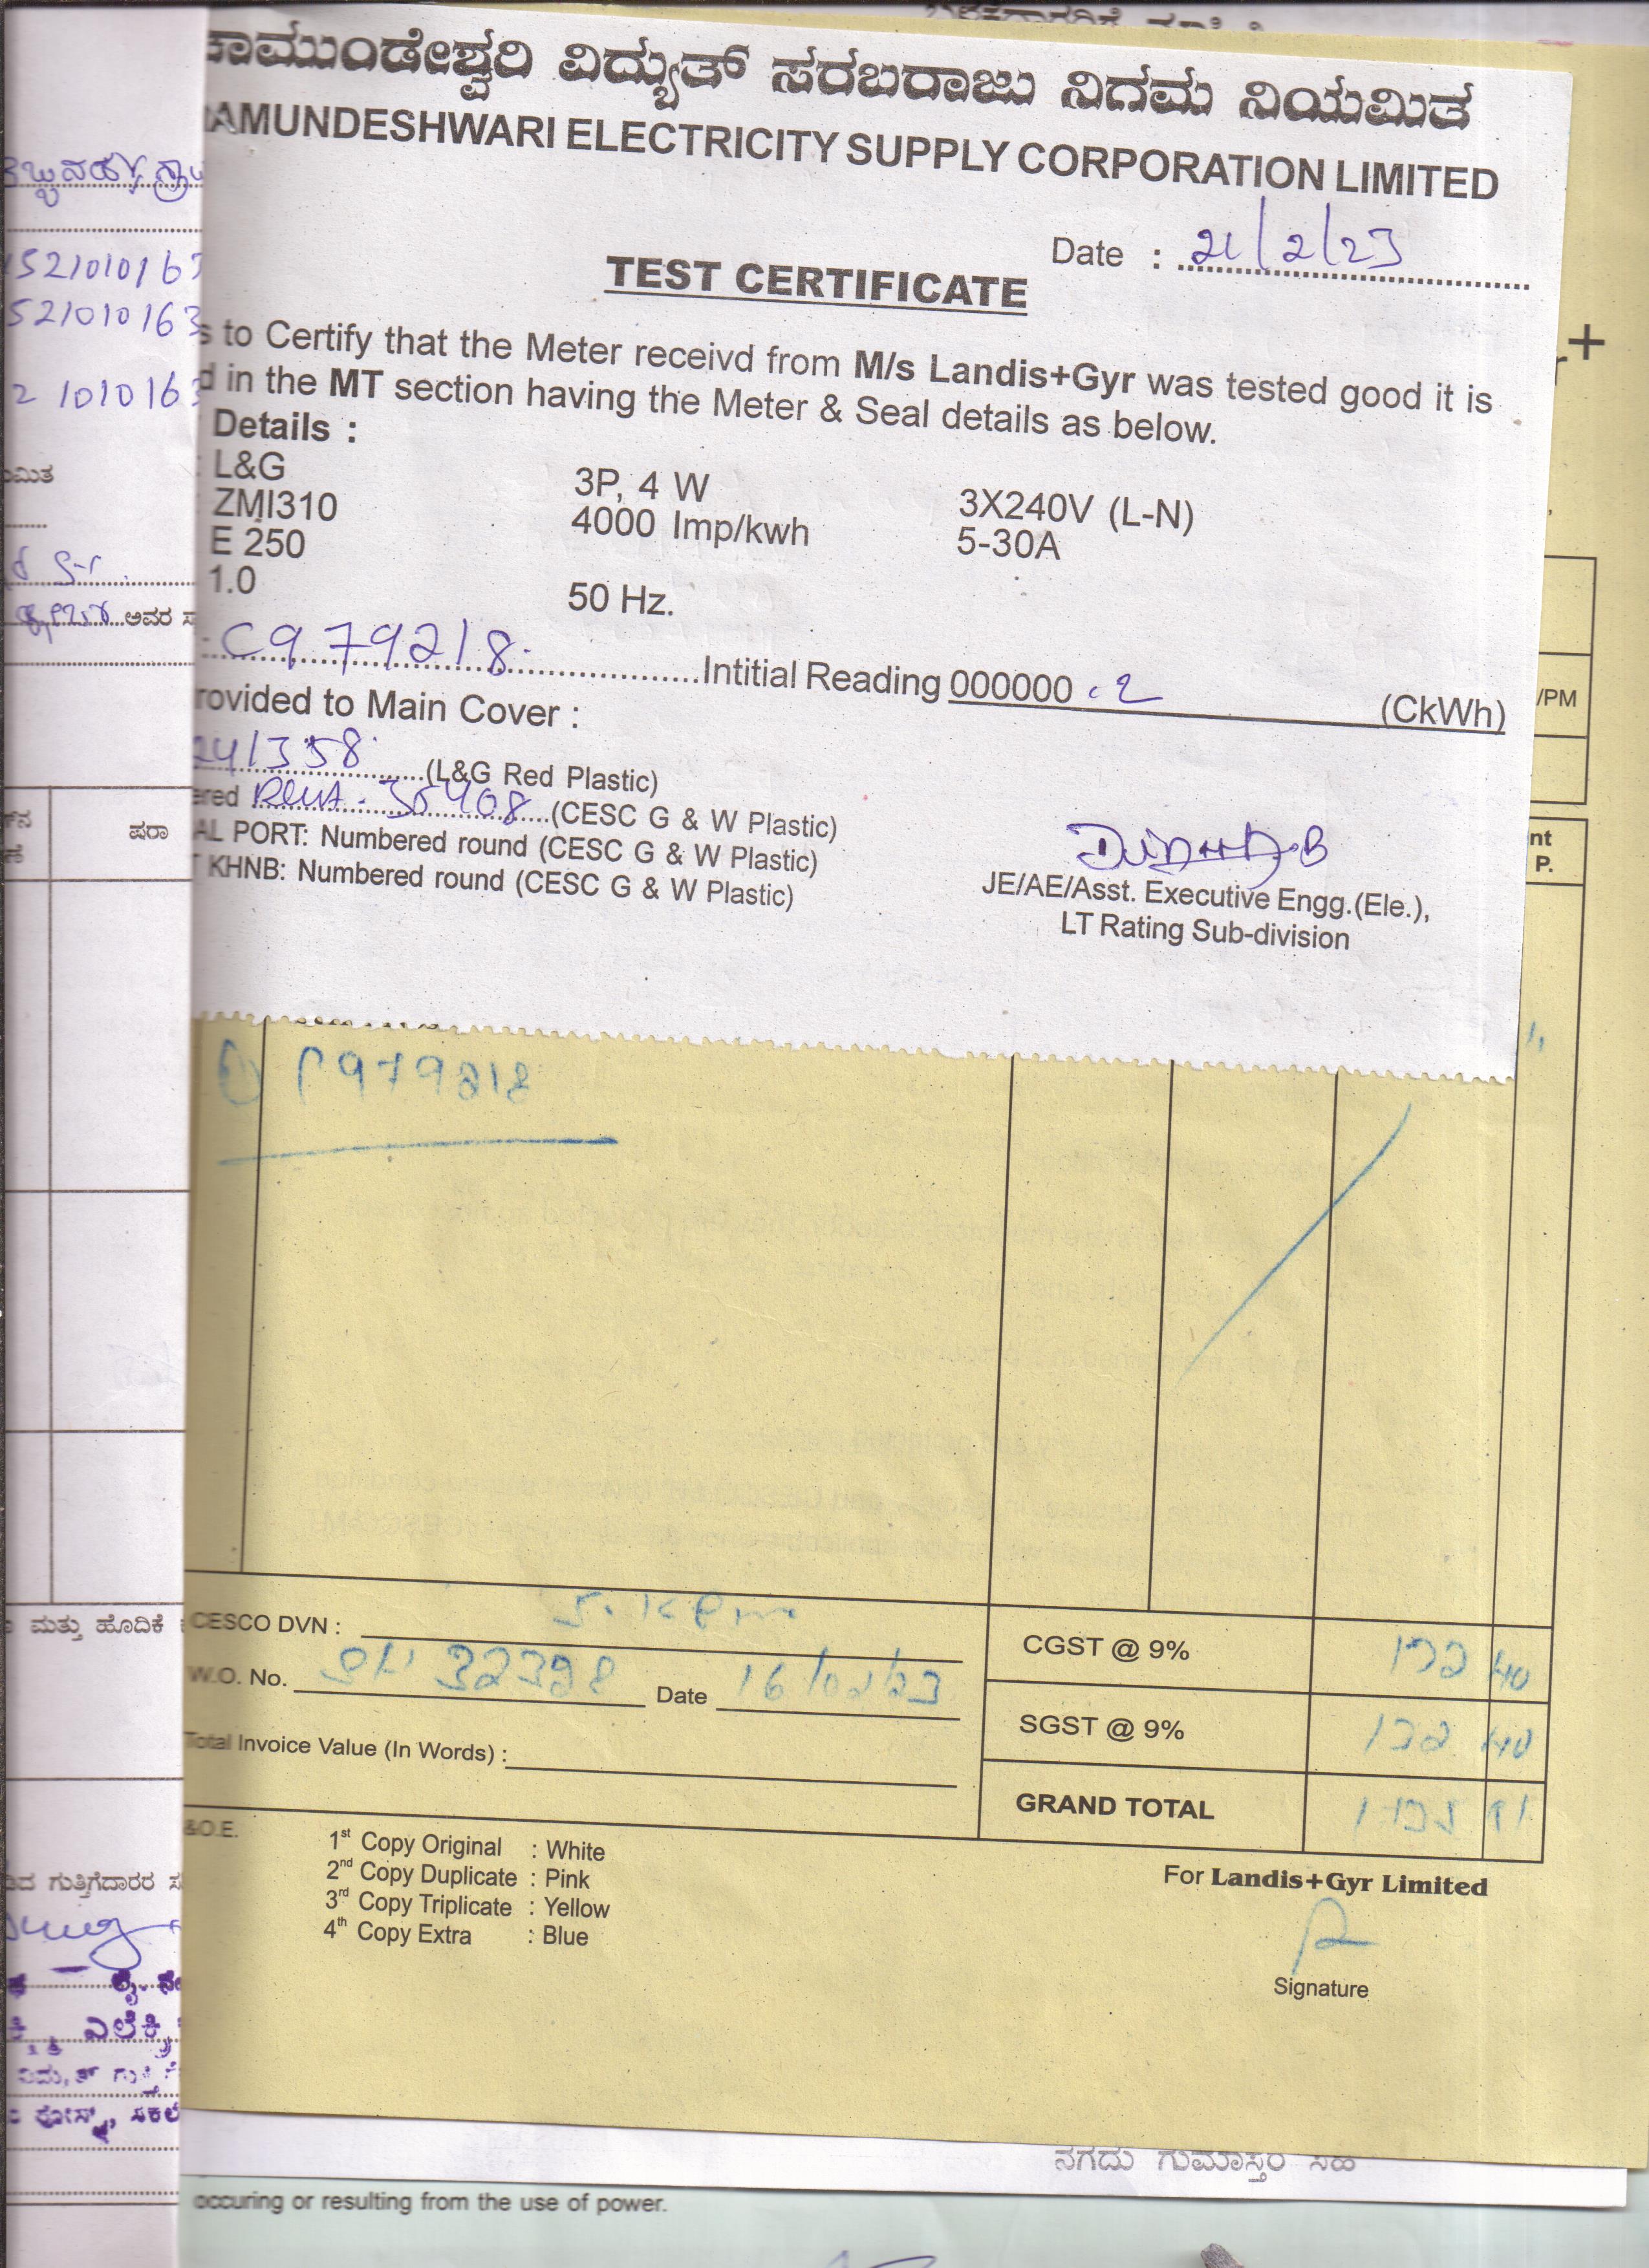 ಚಾಮುಂಡೇಶ್ವರಿ ವಿದ್ಯುತ್ ಸರಬರಾಜು ನಿಗಮ ನಿಯಮಿತ
AMUNDESHWARI ELECTRICITY SUPPLY CORPORATION LIMITED
Date : 21/2/23
TEST CERTIFICATE
s to Certify that the Meter receivd from M/s Landis+Gyr was tested good it is
d in the MT section having the Meter & Seal details as below.
Details :
: L&G 3P, 4 W 3X240V (L-N)
: ZMI310 4000 Imp/kwh 5-30A
E 250
1.0 50 Hz.
C979218 Intitial Reading 000000.2 (CkWh)
rovided to Main Cover :
241358 (L&G Red Plastic)
ered 35408 (CESC G & W Plastic)
AL PORT: Numbered round (CESC G & W Plastic)
T KHNB: Numbered round (CESC G & W Plastic)
JE/AE/Asst. Executive Engg.(Ele.),
LT Rating Sub-division
521010163
521010163
2 1010163
ಯಮಿತ
ಅವರ
ಷರಾ
ಮತ್ತು ಹೊದಿಕೆ
ಗುತ್ತಿಗೆದಾರರ
/PM
nt
P.
C979218
CESCO DVN :
W.O. No. 32398 Date 16/02/23
Total Invoice Value (In Words) :
CGST @ 9% 132 40
SGST @ 9% 132 40
GRAND TOTAL 1735 91
&O.E.
1st Copy Original : White
2nd Copy Duplicate : Pink
3rd Copy Triplicate : Yellow
4th Copy Extra : Blue
For Landis+Gyr Limited
Signature
ನಗದು ಗುಮಾಸ್ತರ ಸಹಿ
occuring or resulting from the use of power.